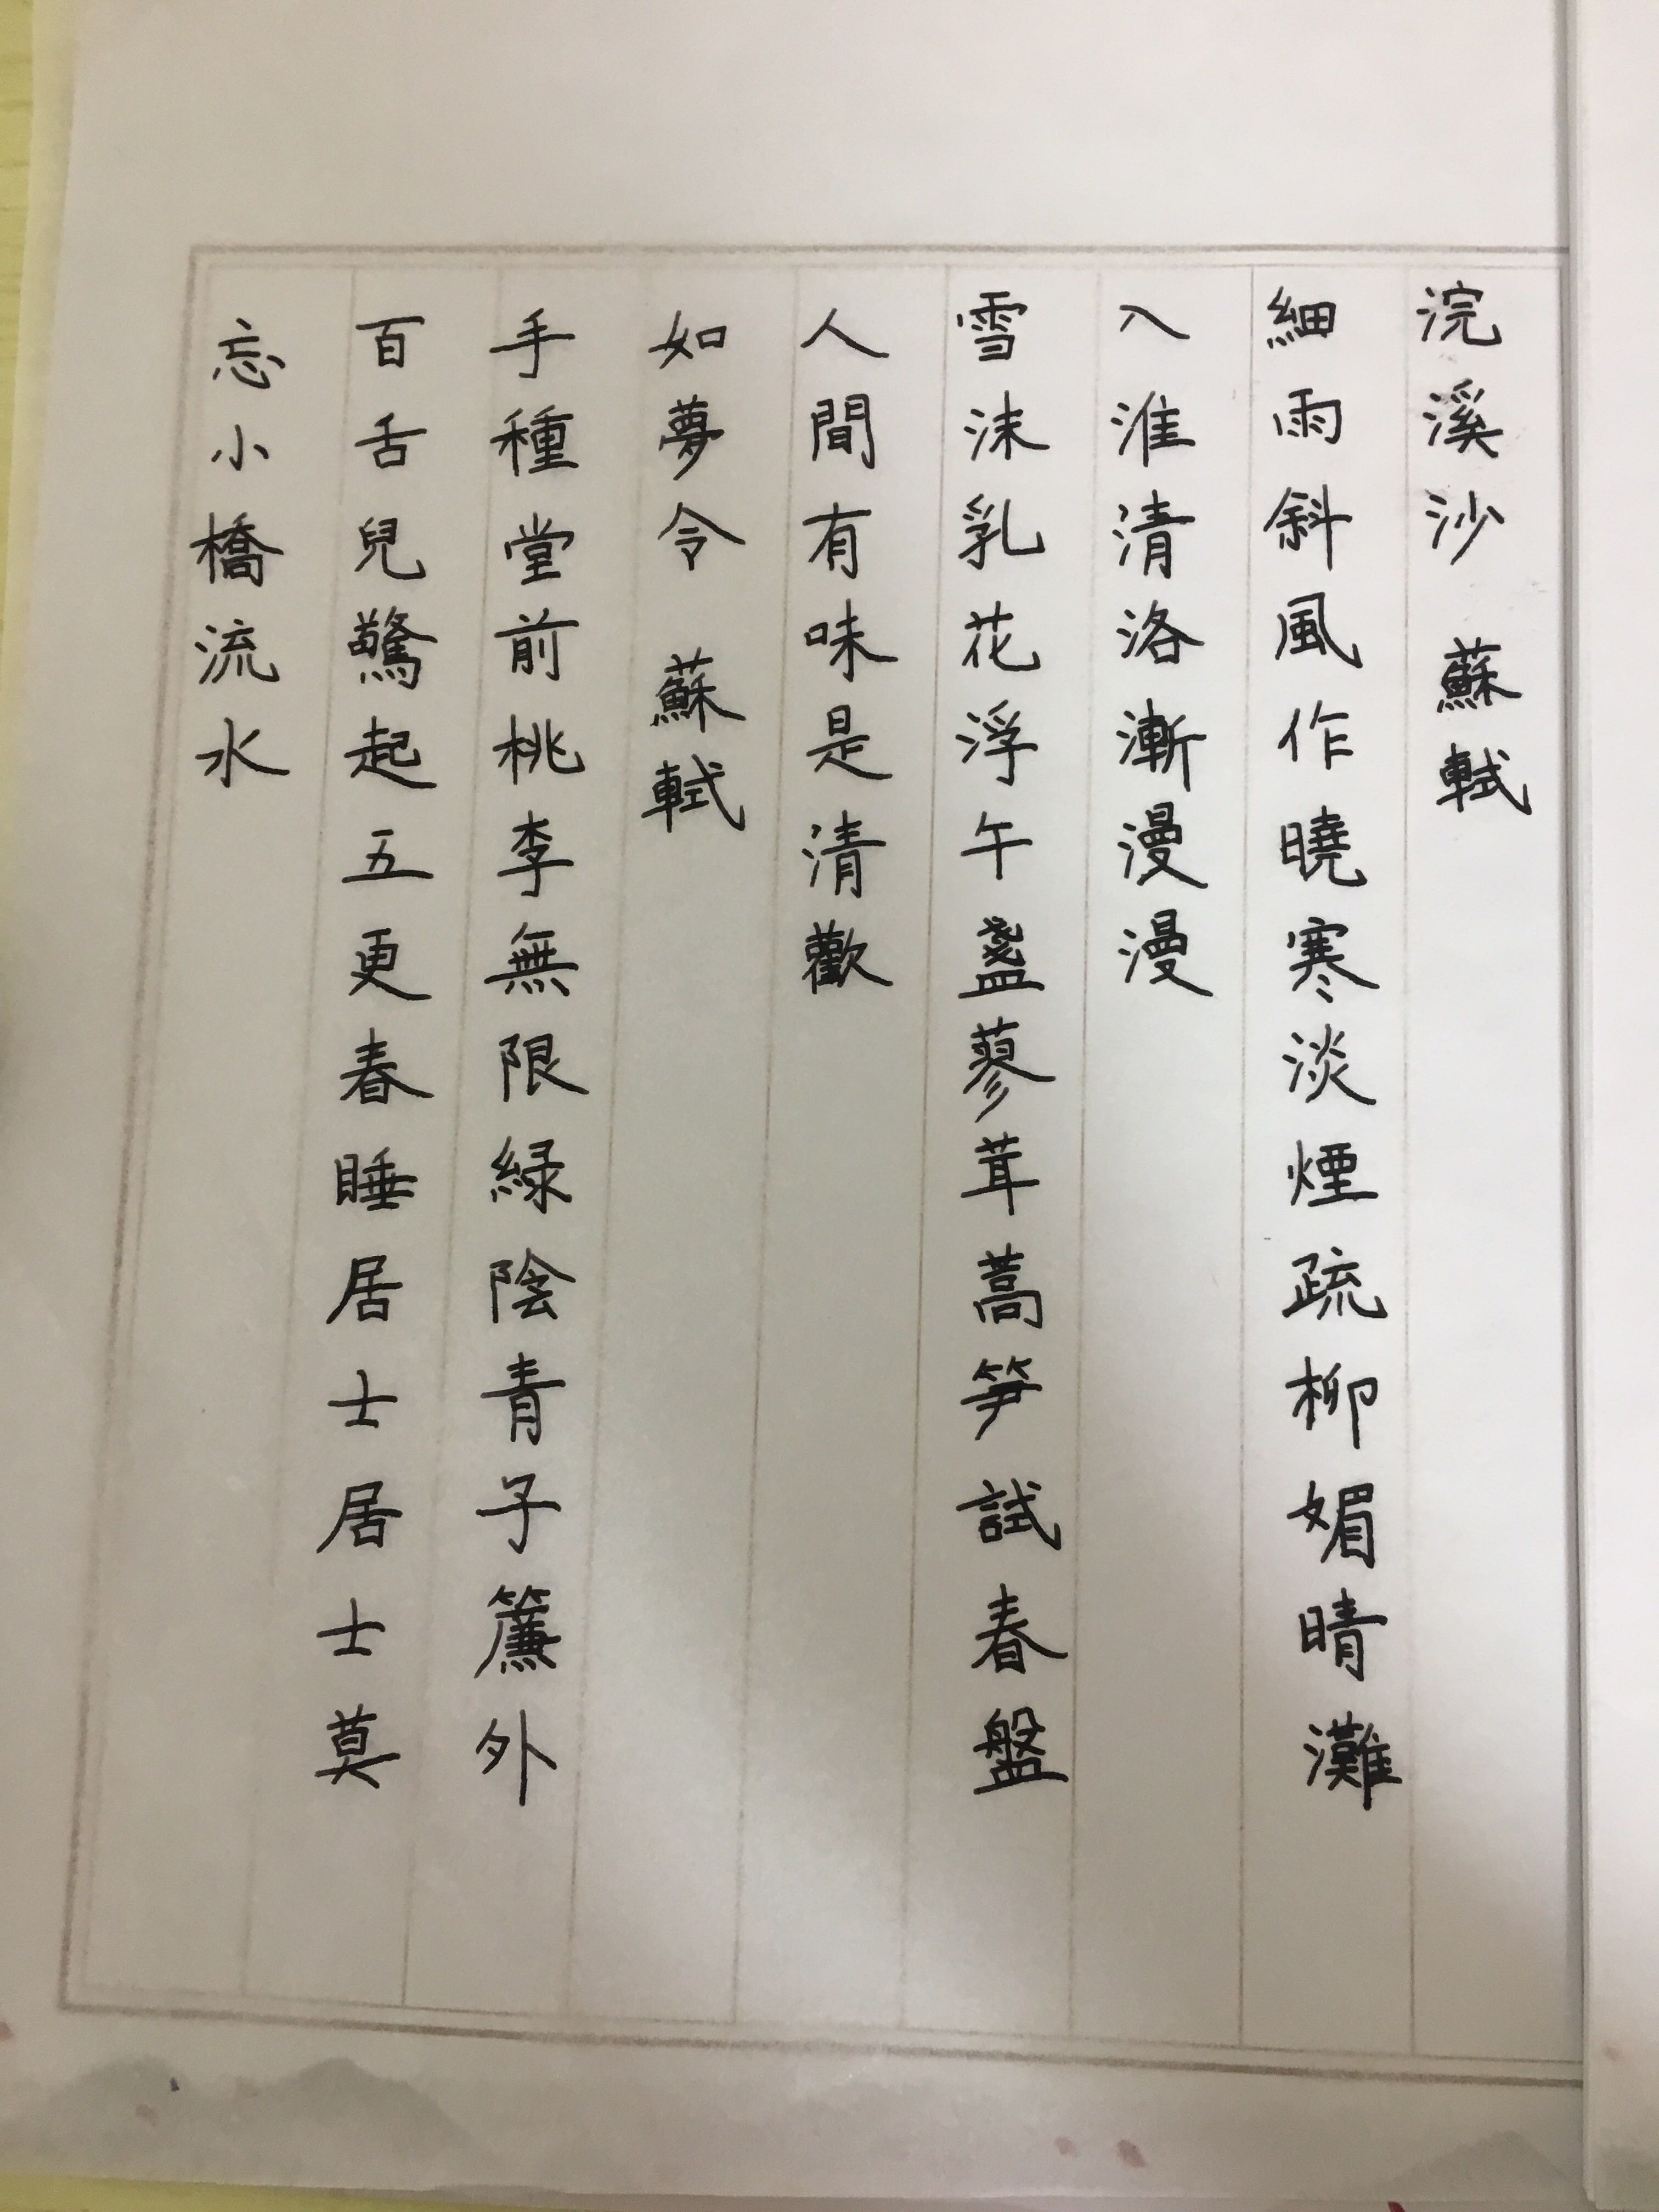 浣溪沙 蘇軾
細雨斜風作曉寒淡煙疏柳媚晴灘
入淮清洛漸漫漫
雪沫乳花浮午盞蓼茸蒿笋試春盤
人間有味是清歡
如夢令 蘇軾
手種堂前桃李無限緑陰青子簾外
百舌兒驚起五更春睡居士居士莫
忘小橋流水